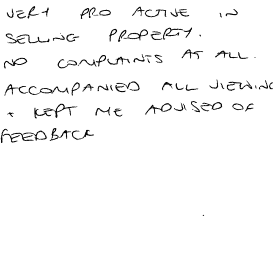 VERY PRO ACTIVE IN
SELLING PROPERTY.
NO COMPLAINTS AT ALL.
ACCOMPANIED ALL VIEWING
+ KEPT ME ADVISED OF
FEEDBACK